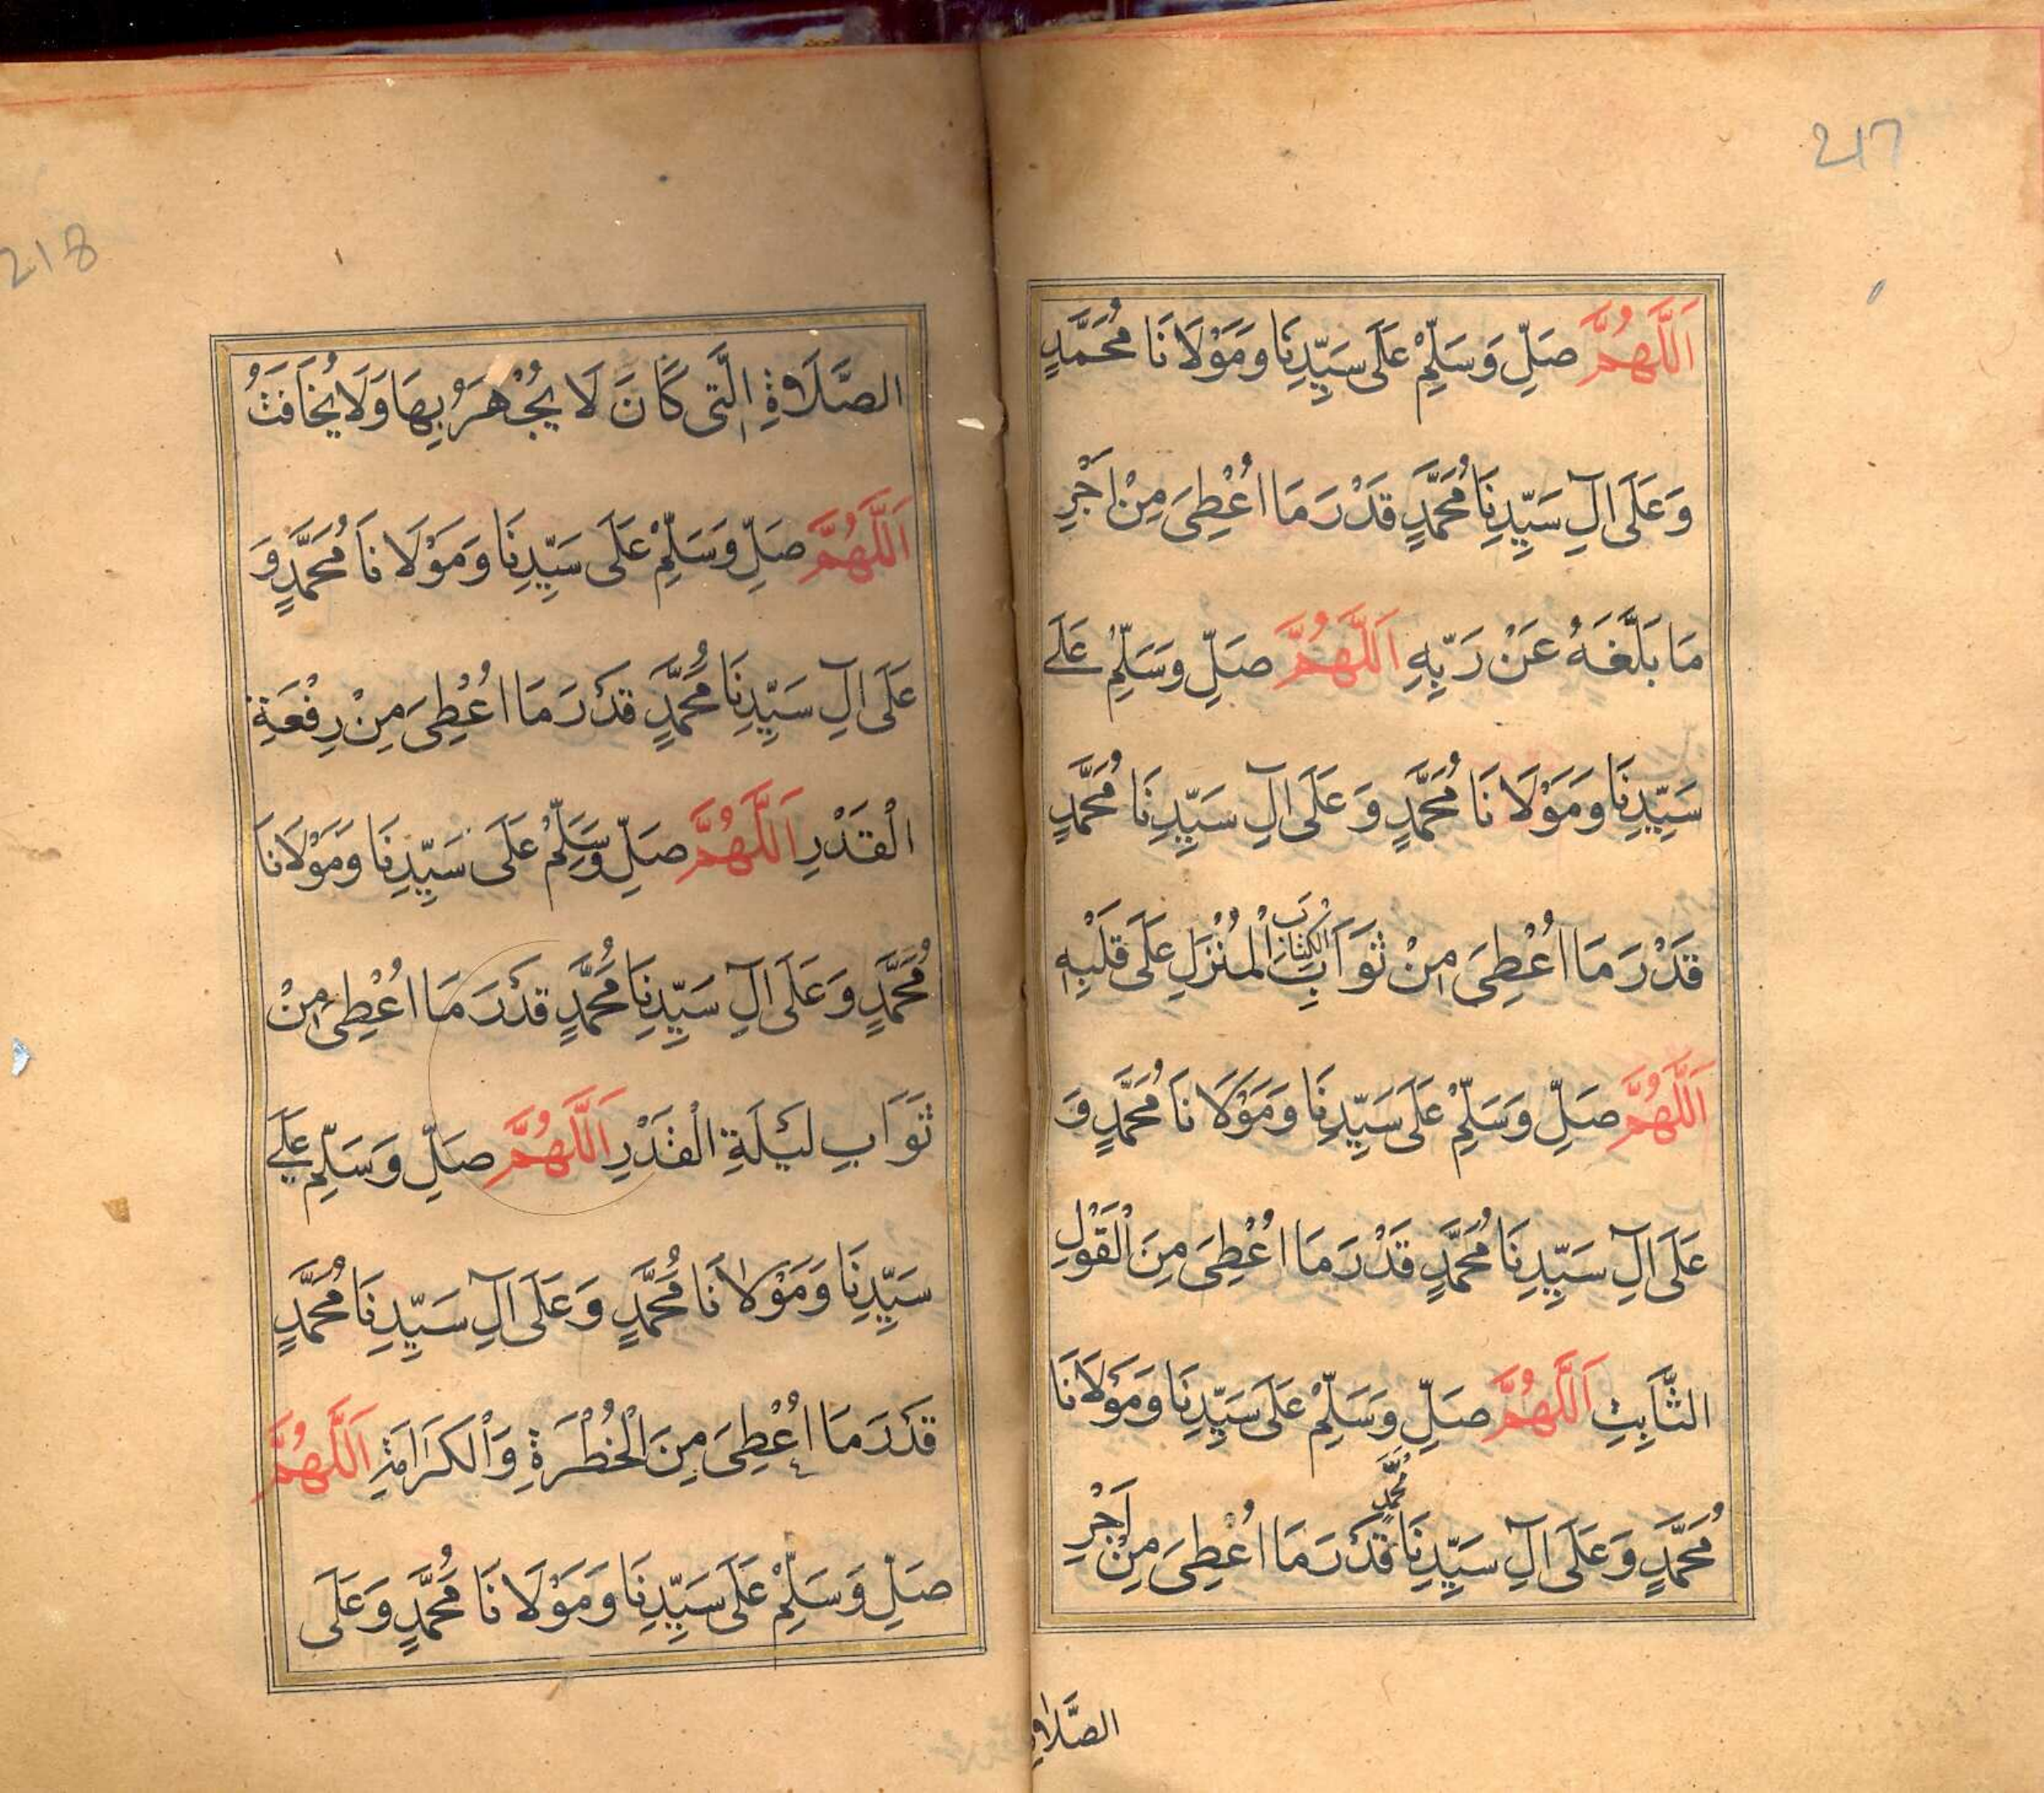 217
اَللَّهُمَّ صَلِّ وَسَلِّمْ عَلَى سَيِّدِنَا وَمَوْلَانَا مُحَمَّدٍ
وَعَلَى اٰلِ سَيِّدِنَا مُحَمَّدٍ قَدْرَ مَا اُعْطِىَ مِنْ اَجْرِ
مَا بَلَّغَهُ عَنْ رَبِّهِ اَللَّهُمَّ صَلِّ وَسَلِّمْ عَلَے
سَيِّدِنَا وَمَوْلَانَا مُحَمَّدٍ وَعَلَى اٰلِ سَيِّدِنَا مُحَمَّدٍ
قَدْرَ مَا اُعْطِىَ مِنْ ثَوَابِ الْكِتَابِ الْمُنْزَلِ عَلَى قَلْبِهِ
اَللَّهُمَّ صَلِّ وَسَلِّمْ عَلَى سَيِّدِنَا وَمَوْلَانَا مُحَمَّدٍ وَ
عَلَى اٰلِ سَيِّدِنَا مُحَمَّدٍ قَدْرَ مَا اُعْطِىَ مِنَ الْقَوْلِ
الثَّابِتِ اَللَّهُمَّ صَلِّ وَسَلِّمْ عَلَى سَيِّدِنَا وَمَوْلَانَا
مُحَمَّدٍ وَعَلَى اٰلِ سَيِّدِنَا مُحَمَّدٍ قَدْرَ مَا اُعْطِىَ مِنْ اَجْرِ
الصَّلَاةِ
218
الصَّلَاةِ الَّتِى كَانَ لَا يُجْهَرُ بِهَا وَلَا يُخَافَتُ
اَللَّهُمَّ صَلِّ وَسَلِّمْ عَلَى سَيِّدِنَا وَمَوْلَانَا مُحَمَّدٍ وَ
عَلَى اٰلِ سَيِّدِنَا مُحَمَّدٍ قَدْرَ مَا اُعْطِىَ مِنْ رِفْعَةِ
الْقَدْرِ اَللَّهُمَّ صَلِّ وَسَلِّمْ عَلَى سَيِّدِنَا وَمَوْلَانَا
مُحَمَّدٍ وَعَلَى اٰلِ سَيِّدِنَا مُحَمَّدٍ قَدْرَ مَا اُعْطِىَ مِنْ
ثَوَابِ لَيْلَةِ الْقَدْرِ اَللَّهُمَّ صَلِّ وَسَلِّمْ عَلَے
سَيِّدِنَا وَمَوْلَانَا مُحَمَّدٍ وَعَلَى اٰلِ سَيِّدِنَا مُحَمَّدٍ
قَدْرَ مَا اُعْطِىَ مِنَ الْخُطْرَةِ وَالْكَرَامَةِ اَللَّهُمَّ
صَلِّ وَسَلِّمْ عَلَى سَيِّدِنَا وَمَوْلَانَا مُحَمَّدٍ وَعَلَى